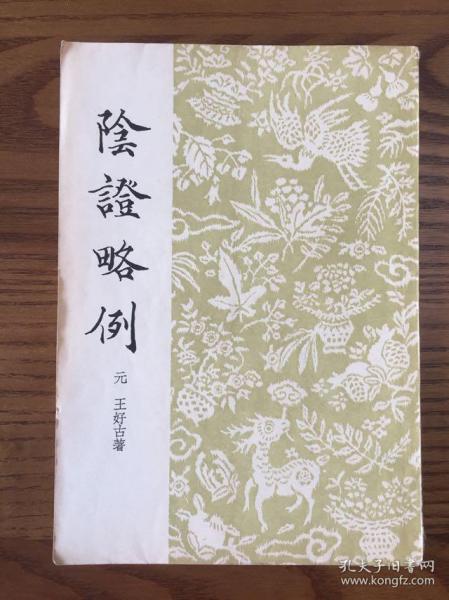 陰證略例
元 王好古著
孔夫子旧书网
www.kongfz.com